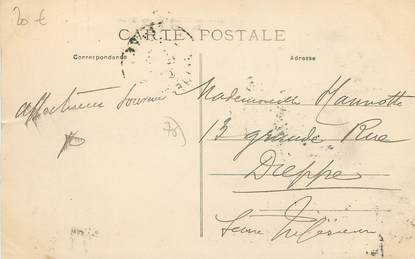 20 €
CARTE POSTALE
Correspondance
Adresse
affectueux souvenir
Mademoiselle
13 grande Rue
Dieppe
Seine Inférieure